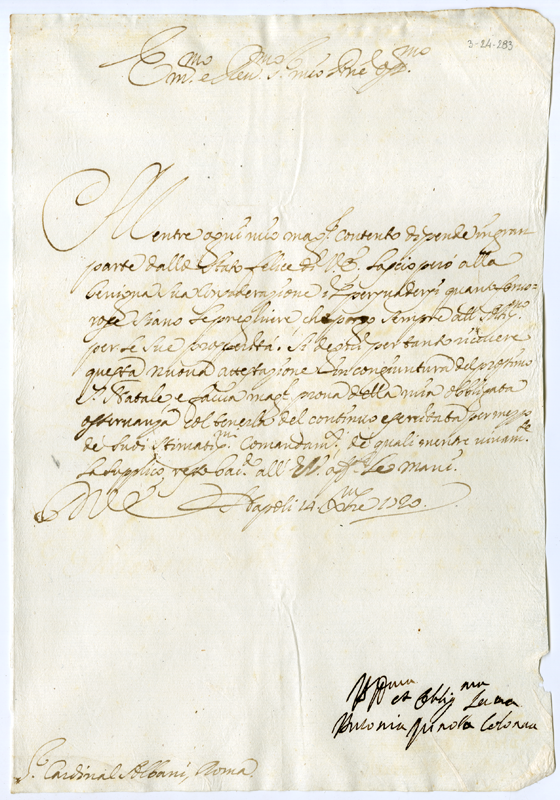 3-24-283
Em.mo e Rev.mo S.r mio P.ne
Mentre ogni mio mag.r contento dipende in gran
parte dallo stato felice di V.E. lascio può alla
benigna sua consideratione il persuadersi quanto
siano le preghiere, che porgo sempre all'Altis.mo
per le sue prosperità. Si degni per tanto ricevere
questa nuova attestazione in congiuntura del prossimo
S. Natale e faccia mag.r prova della mia obbligata
osservanza col tenerla del continuo esercitata per mezzo
de suoi stimatis.mi Comandam.ti de quali mentre vivam.te
la supplico, resto bac.do all'E.V. le mani.
Napoli 14 Xbre 1720.
et Oblig.ma
Spinola Colonna
S.r Cardinal Albani, Roma